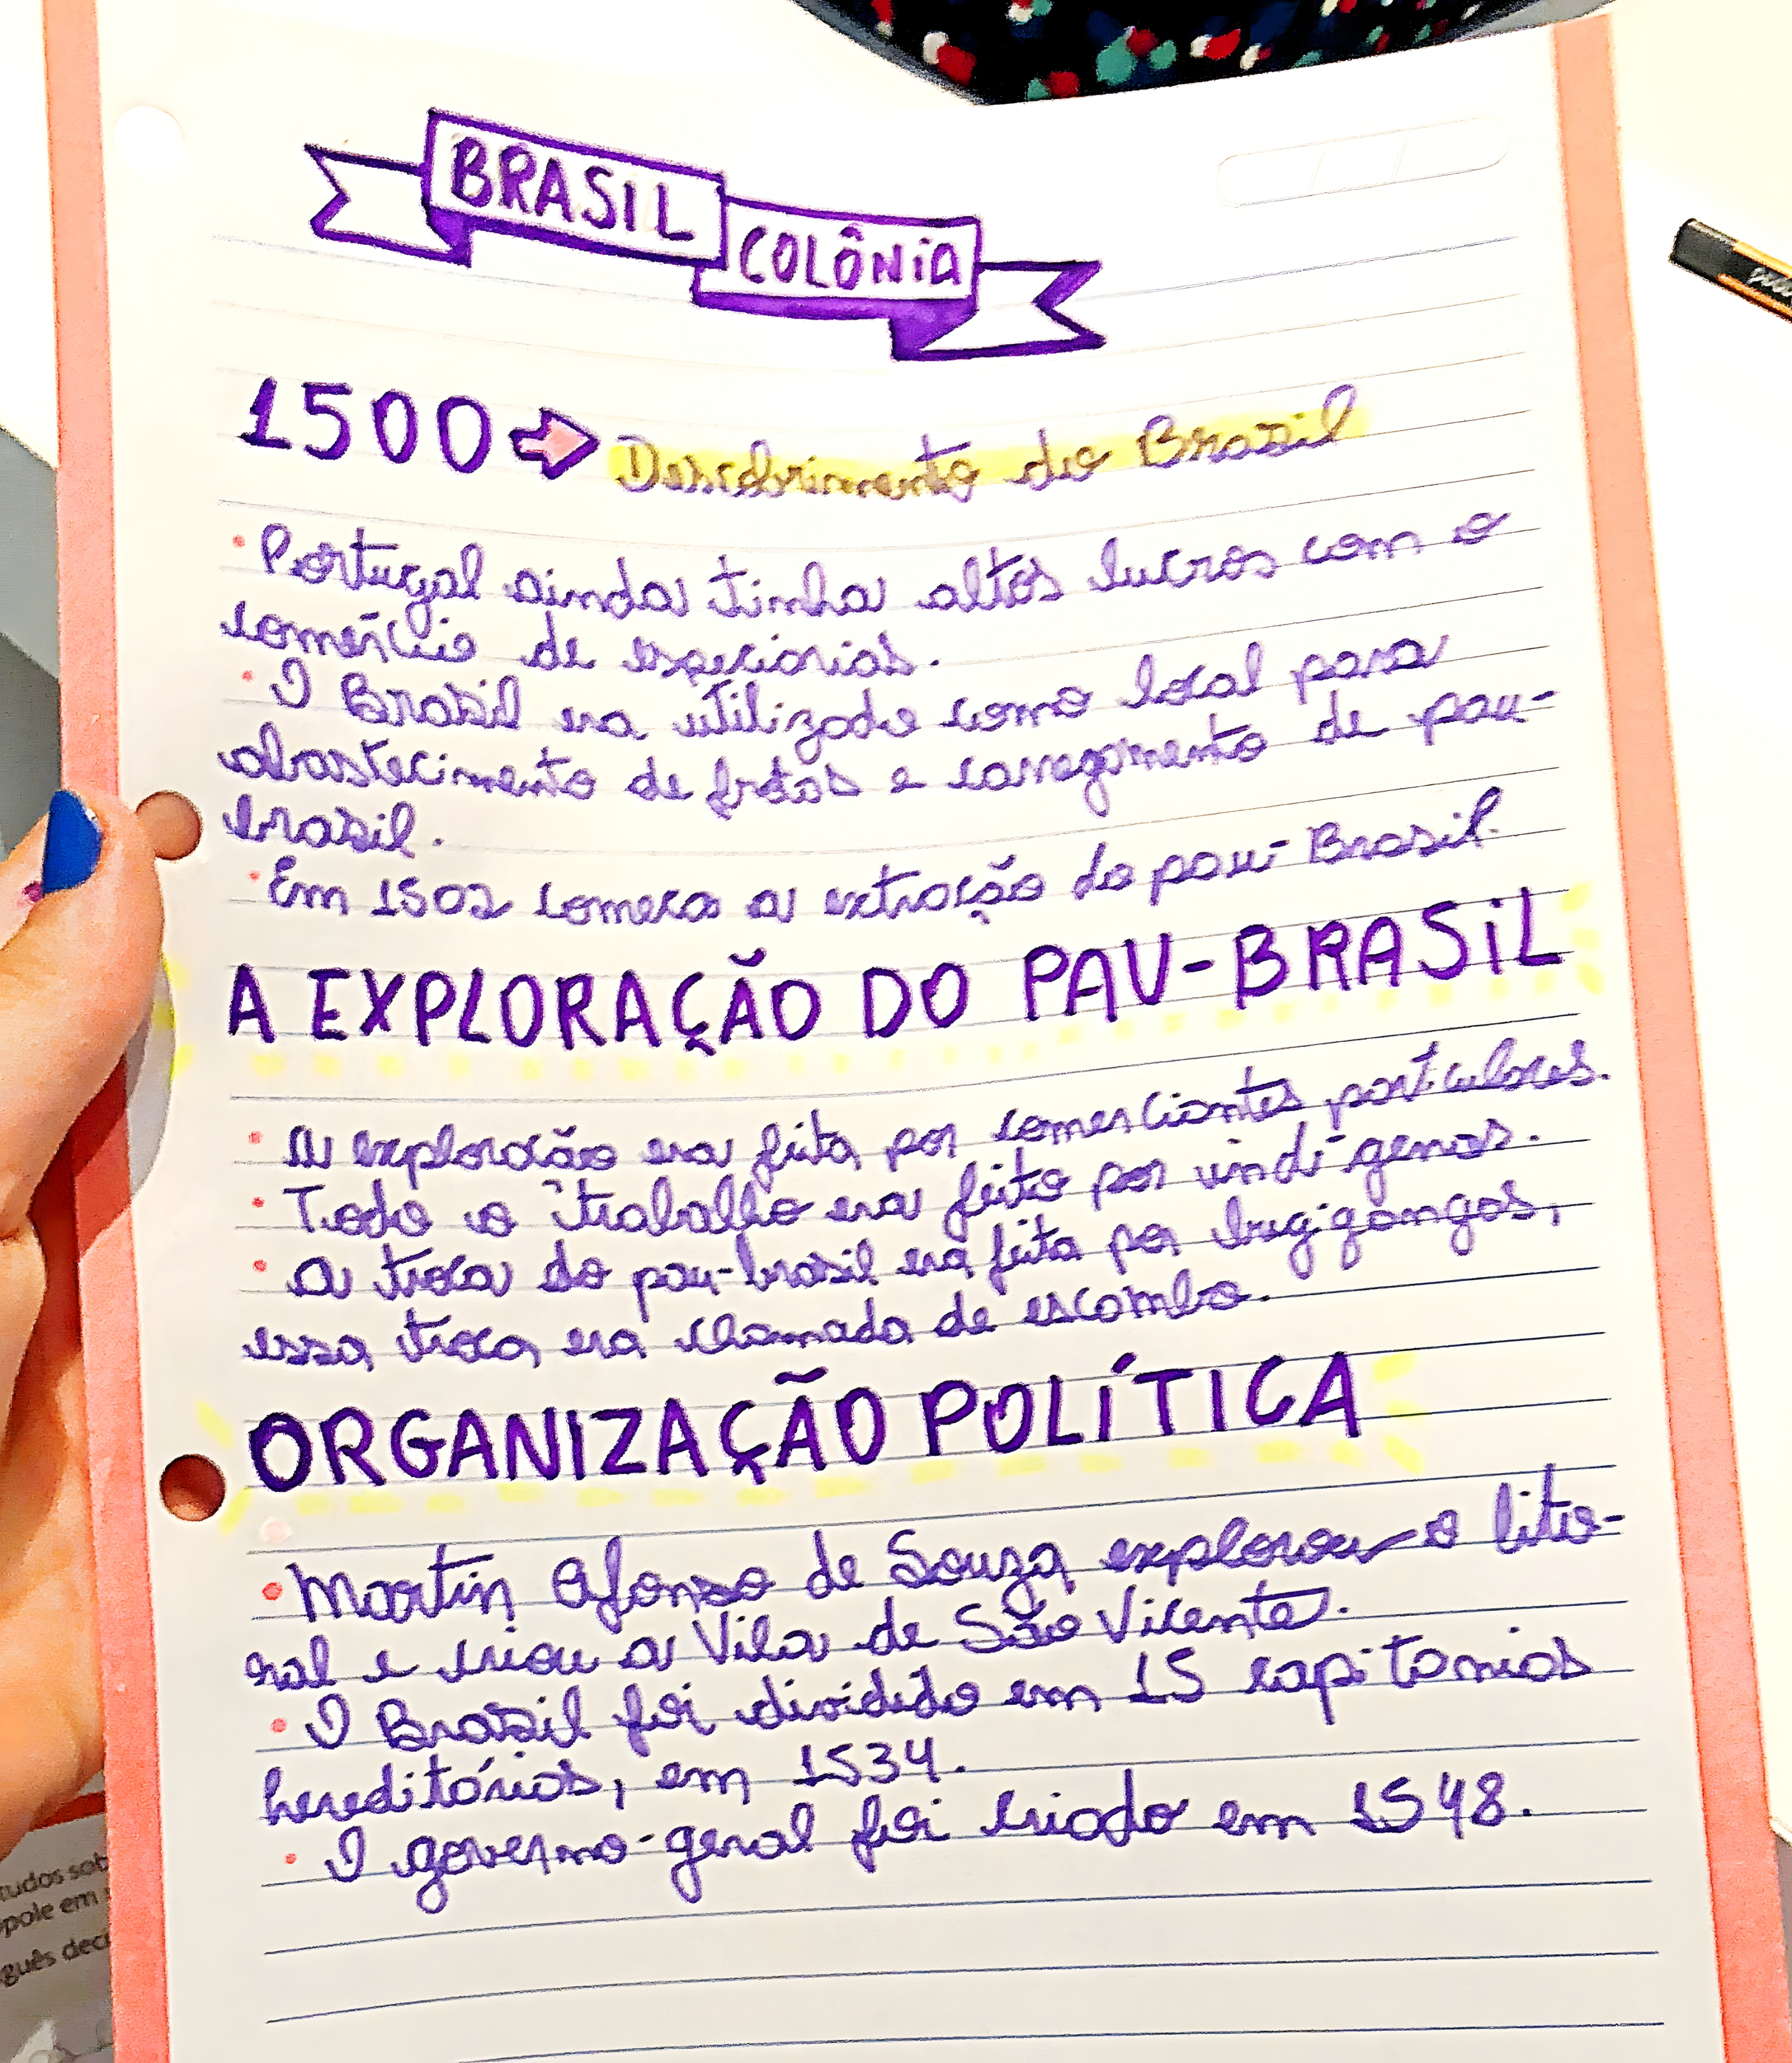 BRASIL
COLÔNIA
1500 Descobrimento do Brasil
• Portugal ainda tinha altos lucros com o
comércio de especiarias.
• O Brasil era utilizado como local para
abastecimento de frotas e carregamento de pau-
brasil.
• Em 1502 começa a extração do pau-Brasil.
A EXPLORAÇÃO DO PAU-BRASIL
• A exploração era feita por comerciantes particulares.
• Todo o trabalho era feito por indígenas.
• A troca do pau-brasil era feita por bugigangas,
essa troca era chamada de escambo.
ORGANIZAÇÃO POLÍTICA
• Martin Afonso de Souza explorou o lito-
ral e criou a Vila de São Vicente.
• O Brasil foi dividido em 15 capitanias
hereditárias, em 1534.
• O governo-geral foi criado em 1548.
tudos sob
pole em
guês deci